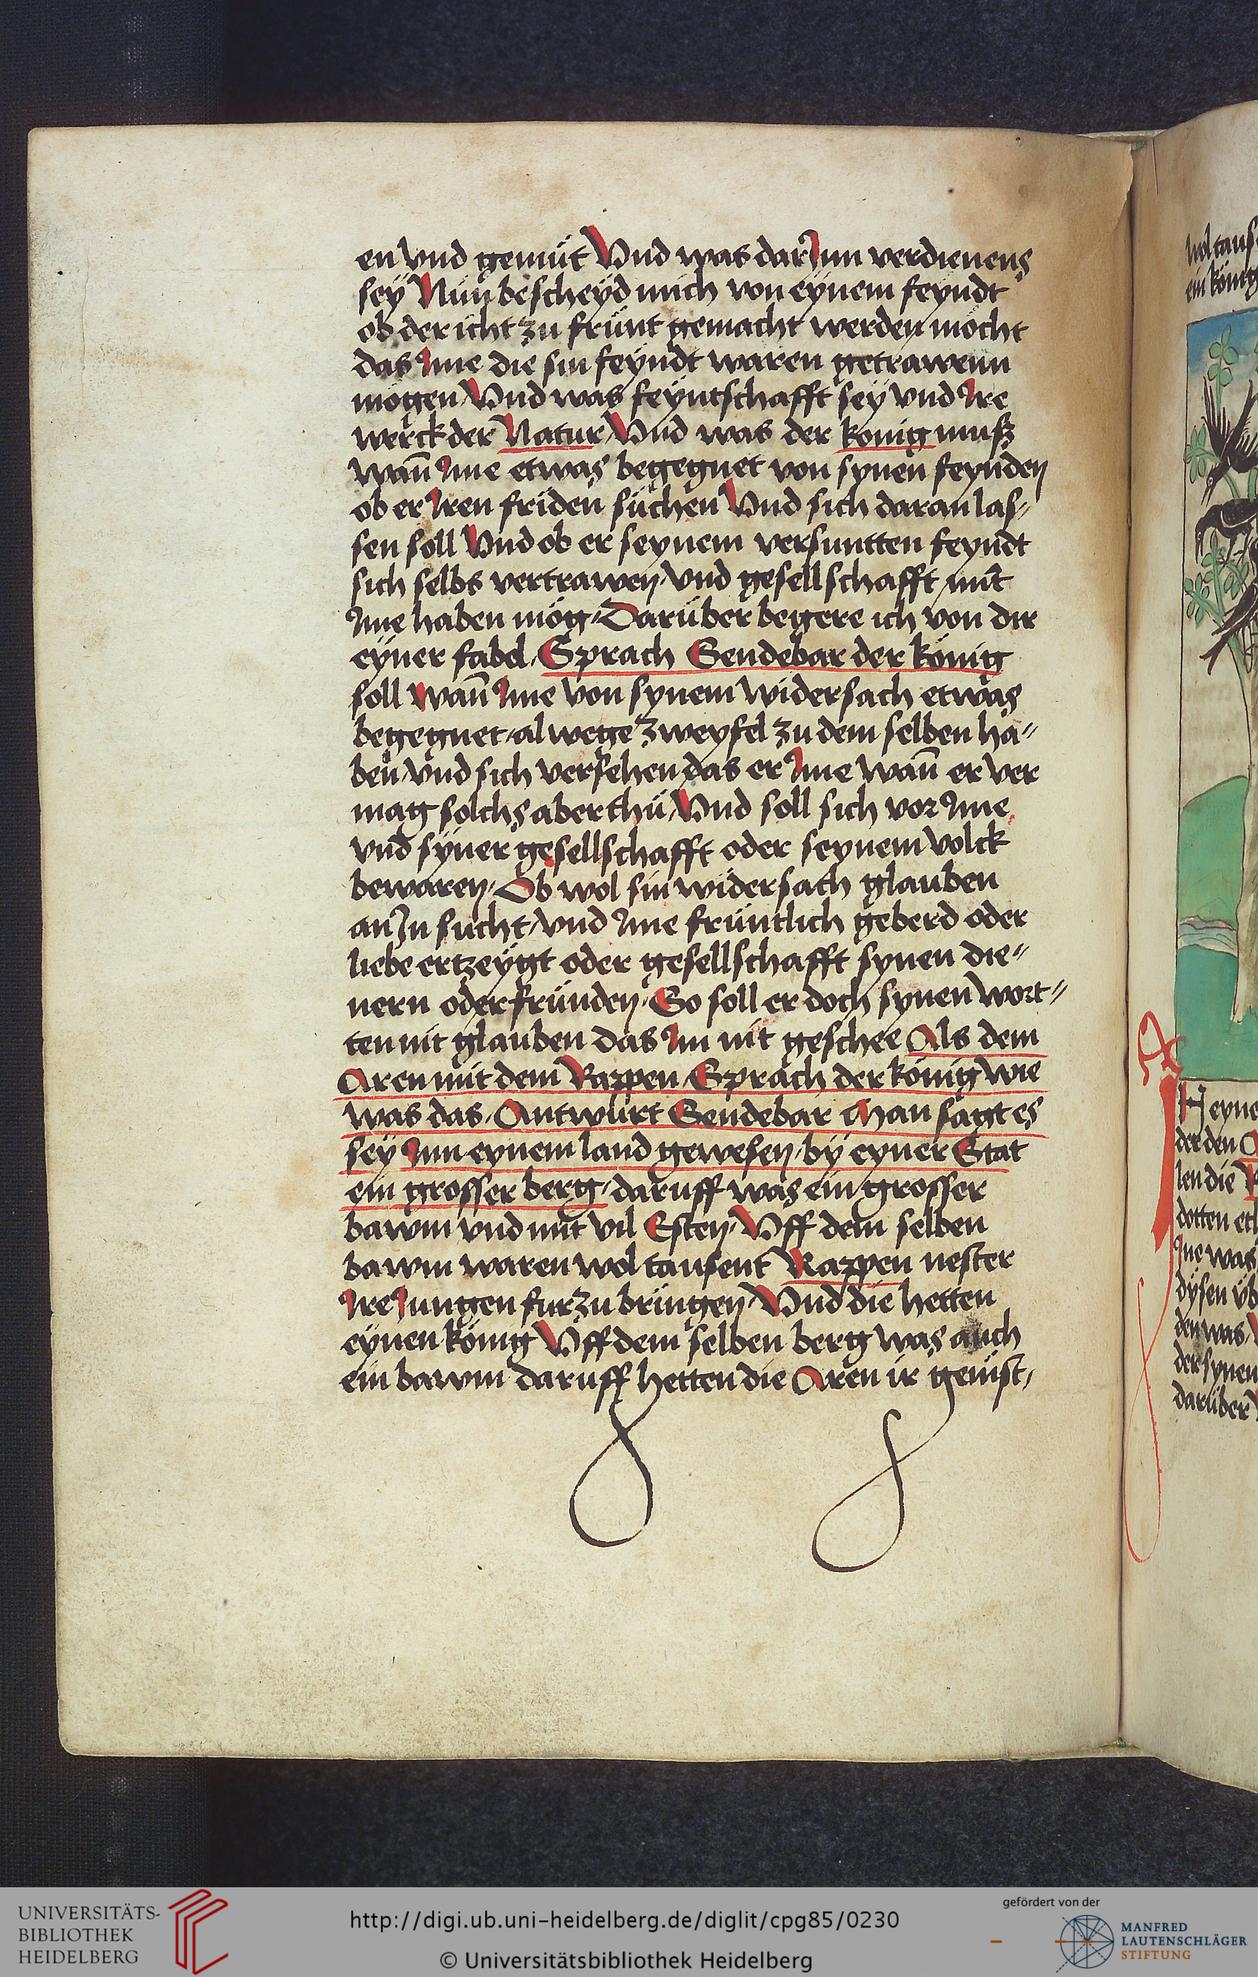 en vnd gemüt Vnd was dar Jnn verdienens
sey Nün bescheyd mich von eynem feyndt
ob der icht zu frünt gemacht werden möcht
das Jme die sin feyndt waren getrawenn
mögen Vnd was feyntschafft sey vnd Jre
werck der Natur Vnd was der konig musz
wañ Jme etwas begegnet von synen feynden
ob er Jren friden süchen Vnd sich daran las-
sen soll Vnd ob er seynem versuntten feyndt
sich selbs vertrawen vnd gesellschafft mit
Jme haben mög Darüber begere ich von dir
eyner fabel Sprach Sendebar der könig
soll wañ Jme von synem widersach etwas
begegnet alwege zweyfel zu dem selben ha-
ben vnd sich versehen das er Jme wañ er ver
mag solchs aber thü Vnd soll sich vor Jme
vnd syner gesellschafft oder seynem volck
bewaren Ob wol sin widersach glauben
an Jn sucht vnd Jme früntlich geberd oder
liebe ertzeygt oder gesellschafft synen die-
nern oder fründen So soll er doch synen wort-
ten nit glauben das Jm nit geschee Als dem
Aren mit dem Rappen Sprach der könig wie
was das Antwürt Sendebar Man sagt es
sey Jnn eynem land gewesen by eyner Stat
ein grosser berg daruff was ein grosser
bawm vnd mit vil Esten Vff dem selben
bawm waren wol tausent Rappen nester
Jre Jungen fur zu bringen Vnd die hetten
eynen könig Vff dem selben berg was auch
ein bawm daruff hetten die Aren ir genist
wol taus
ein könig
Heyne
der den
len die
dotten
Jne was
dysen üb
den was
der synen
darüber
UNIVERSITÄTS-
BIBLIOTHEK
HEIDELBERG
http://digi.ub.uni-heidelberg.de/diglit/cpg85/0230
© Universitätsbibliothek Heidelberg
gefördert von der
MANFRED
LAUTENSCHLÄGER
STIFTUNG